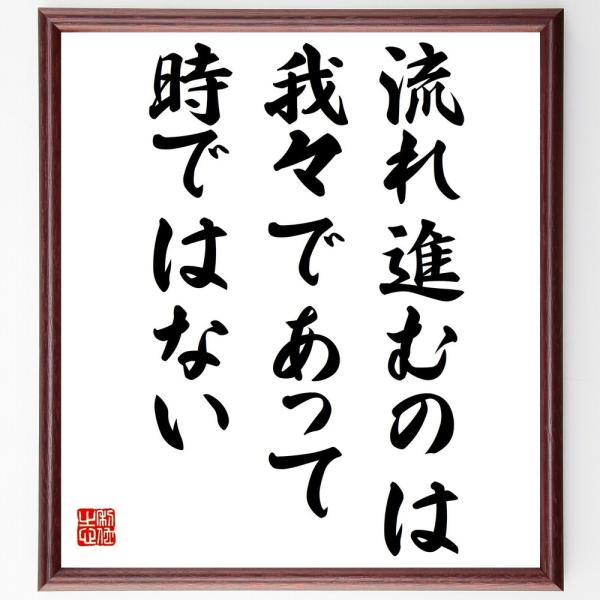 流れ進むのは
我々であって
時ではない